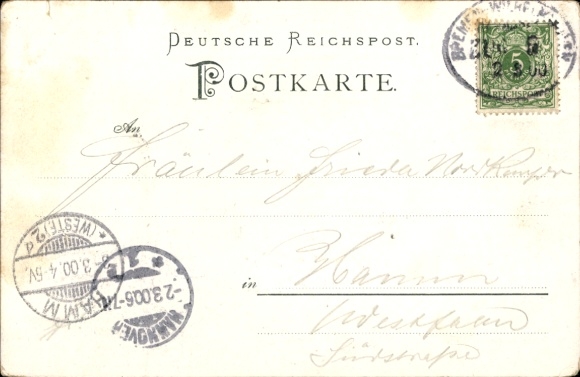 DEUTSCHE REICHSPOST.
POSTKARTE.
BREMEN WILHELMSHAVEN
ZUG
2 3 00
5
REICHSPOST
An
Fräulein Frieda Nordkemper
in Hamm
Westfalen
Südstraße
HAMM
(WESTF) 2
3.00.4-5V.
HANNOVER
1
-2.3.00.6-7N